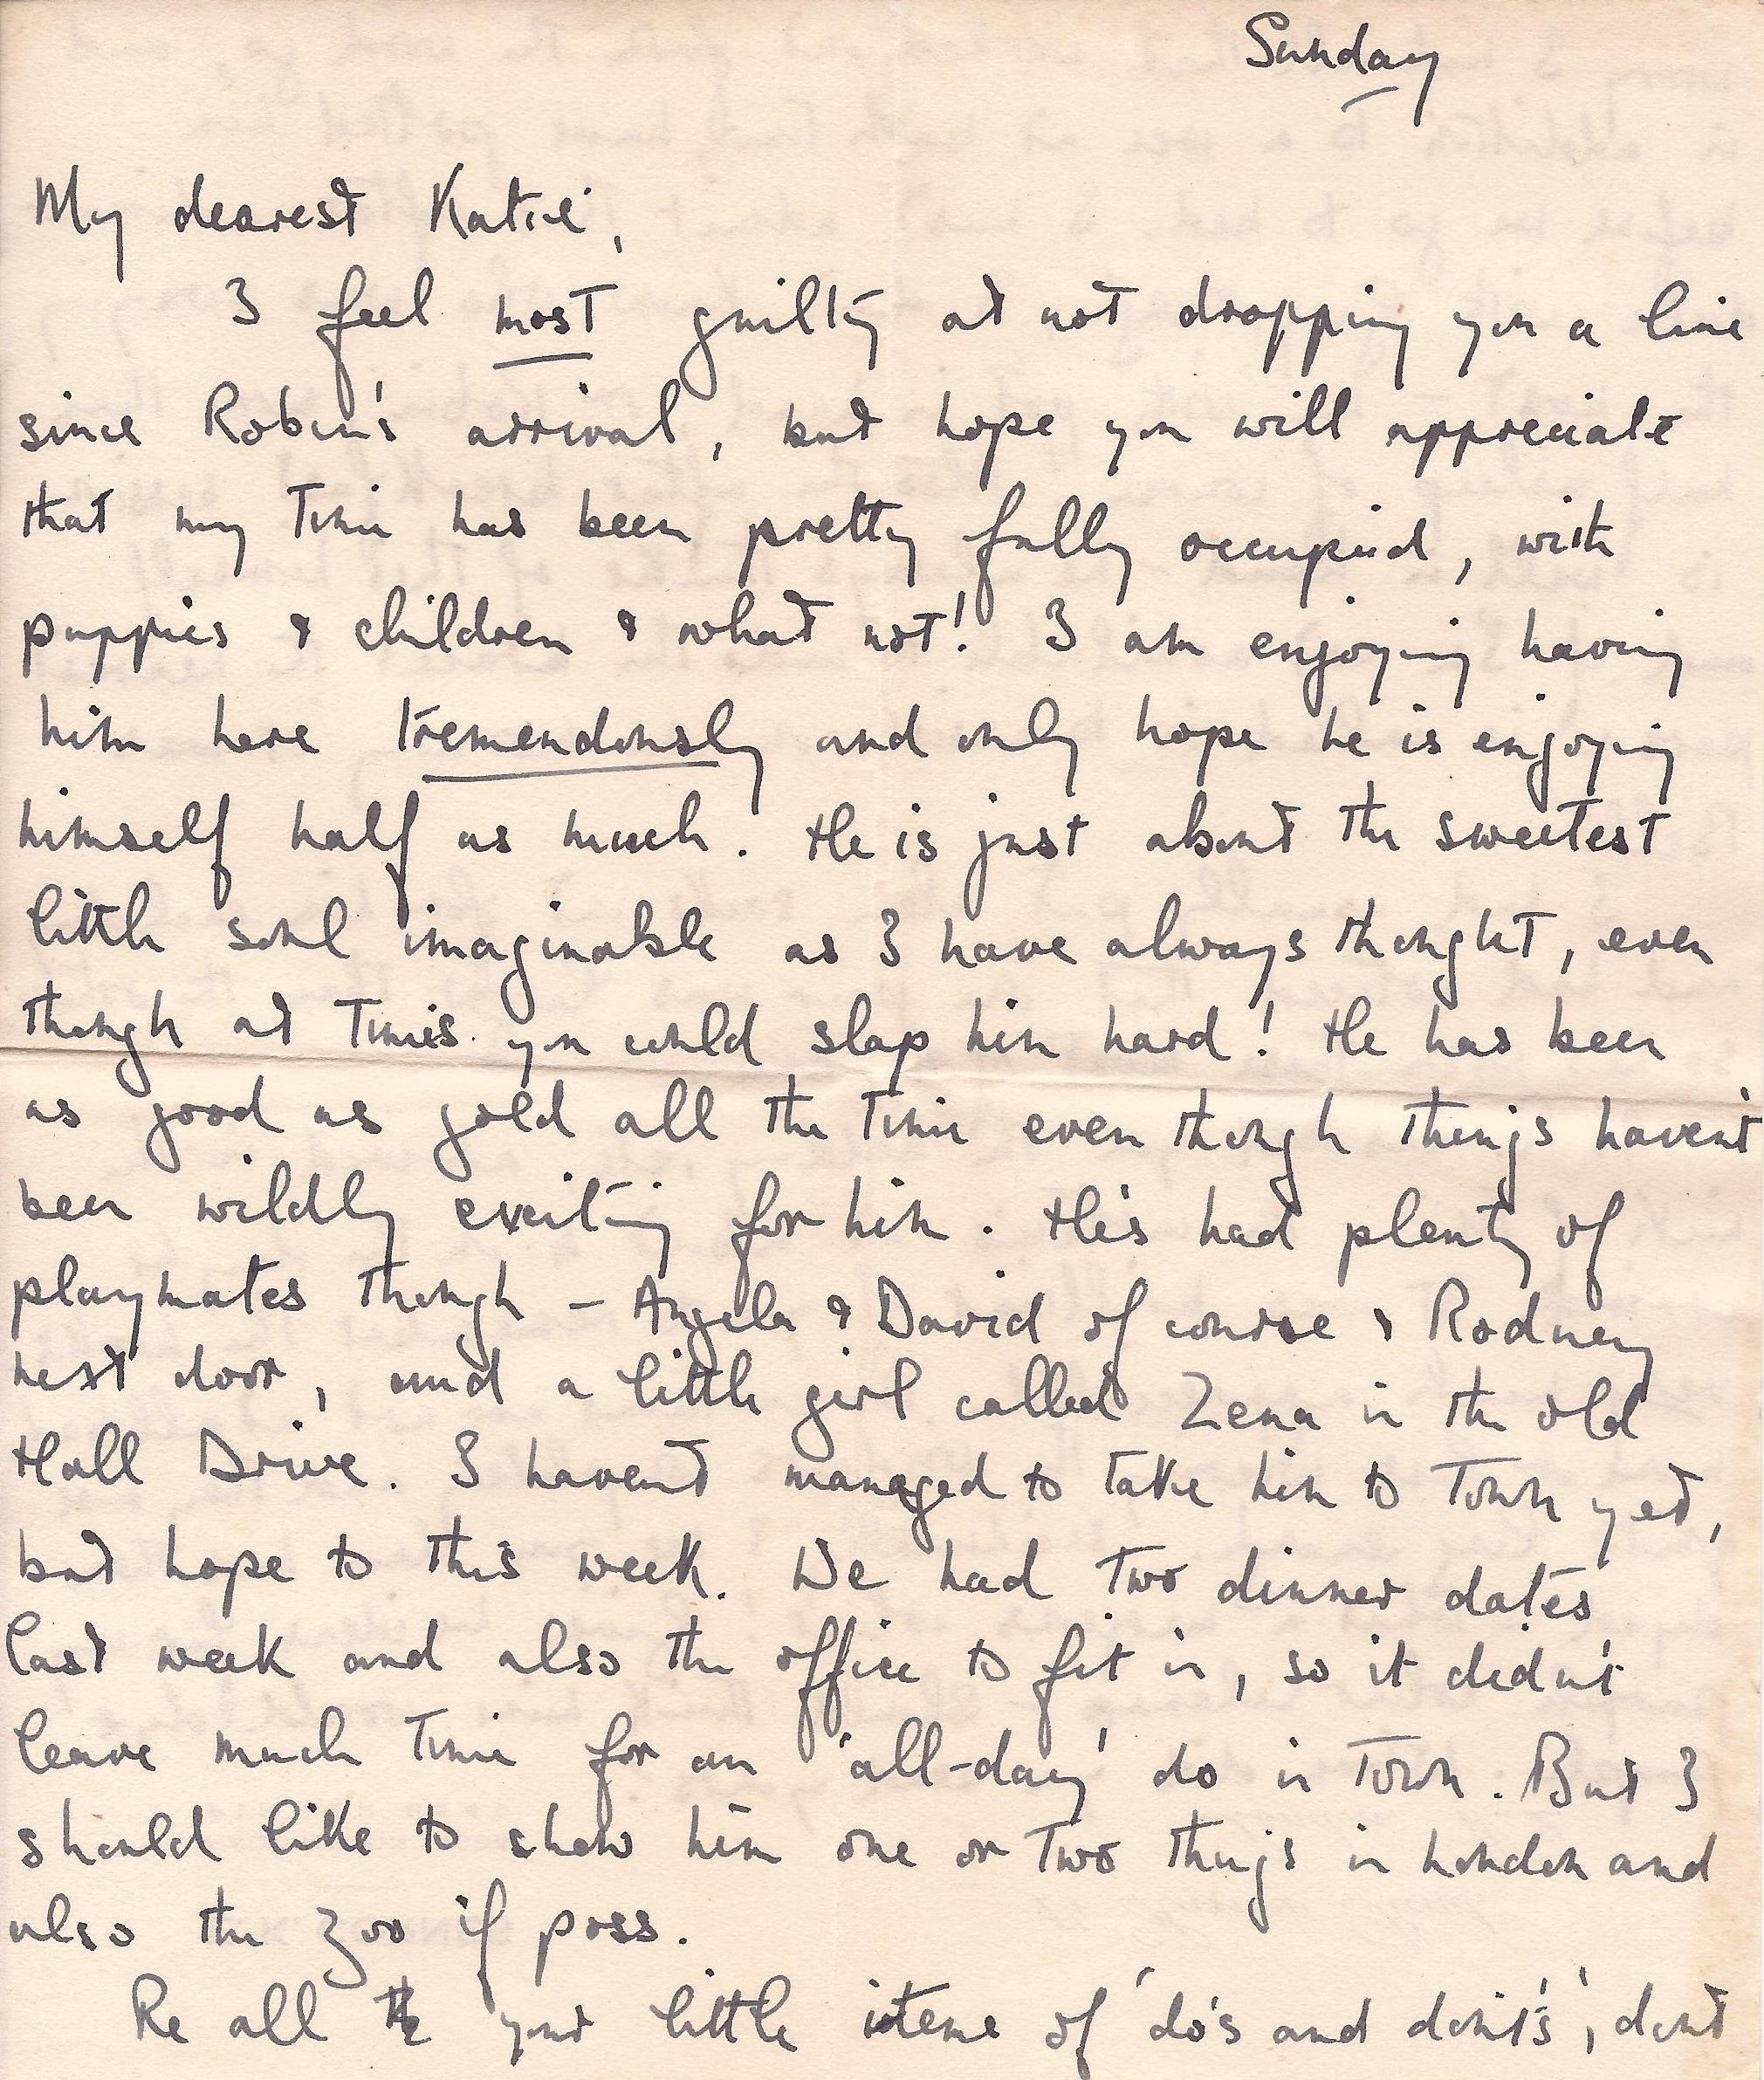 Sunday
My dearest Katie,
I feel most guilty at not dropping you a line
since Robin's arrival, but hope you will appreciate
that my time has been pretty fully occupied, with
puppies & children & what not! I am enjoying having
him here tremendously and only hope he is enjoying
himself half as much. He is just about the sweetest
little soul imaginable as I have always thought, even
though at times you could slap him hard! He has been
as good as gold all the time even though things haven't
been wildly exciting for him. He's had plenty of
playmates though - Angela & David of course & Rodney
next door, and a little girl called Zena in the old
Hall Drive. I haven't managed to take him to Town yet,
but hope to this week. We had two dinner dates
last week and also the office to fit in, so it didn't
leave much time for an 'all-day' do in Town. But I
should like to show him one or two things in London and
also the Zoo if poss.
Re all your little items of 'do's and dont's', dont